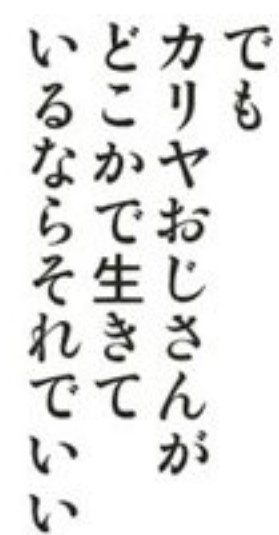 でも
カリヤおじさんが
どこかで生きて
いるならそれでいい